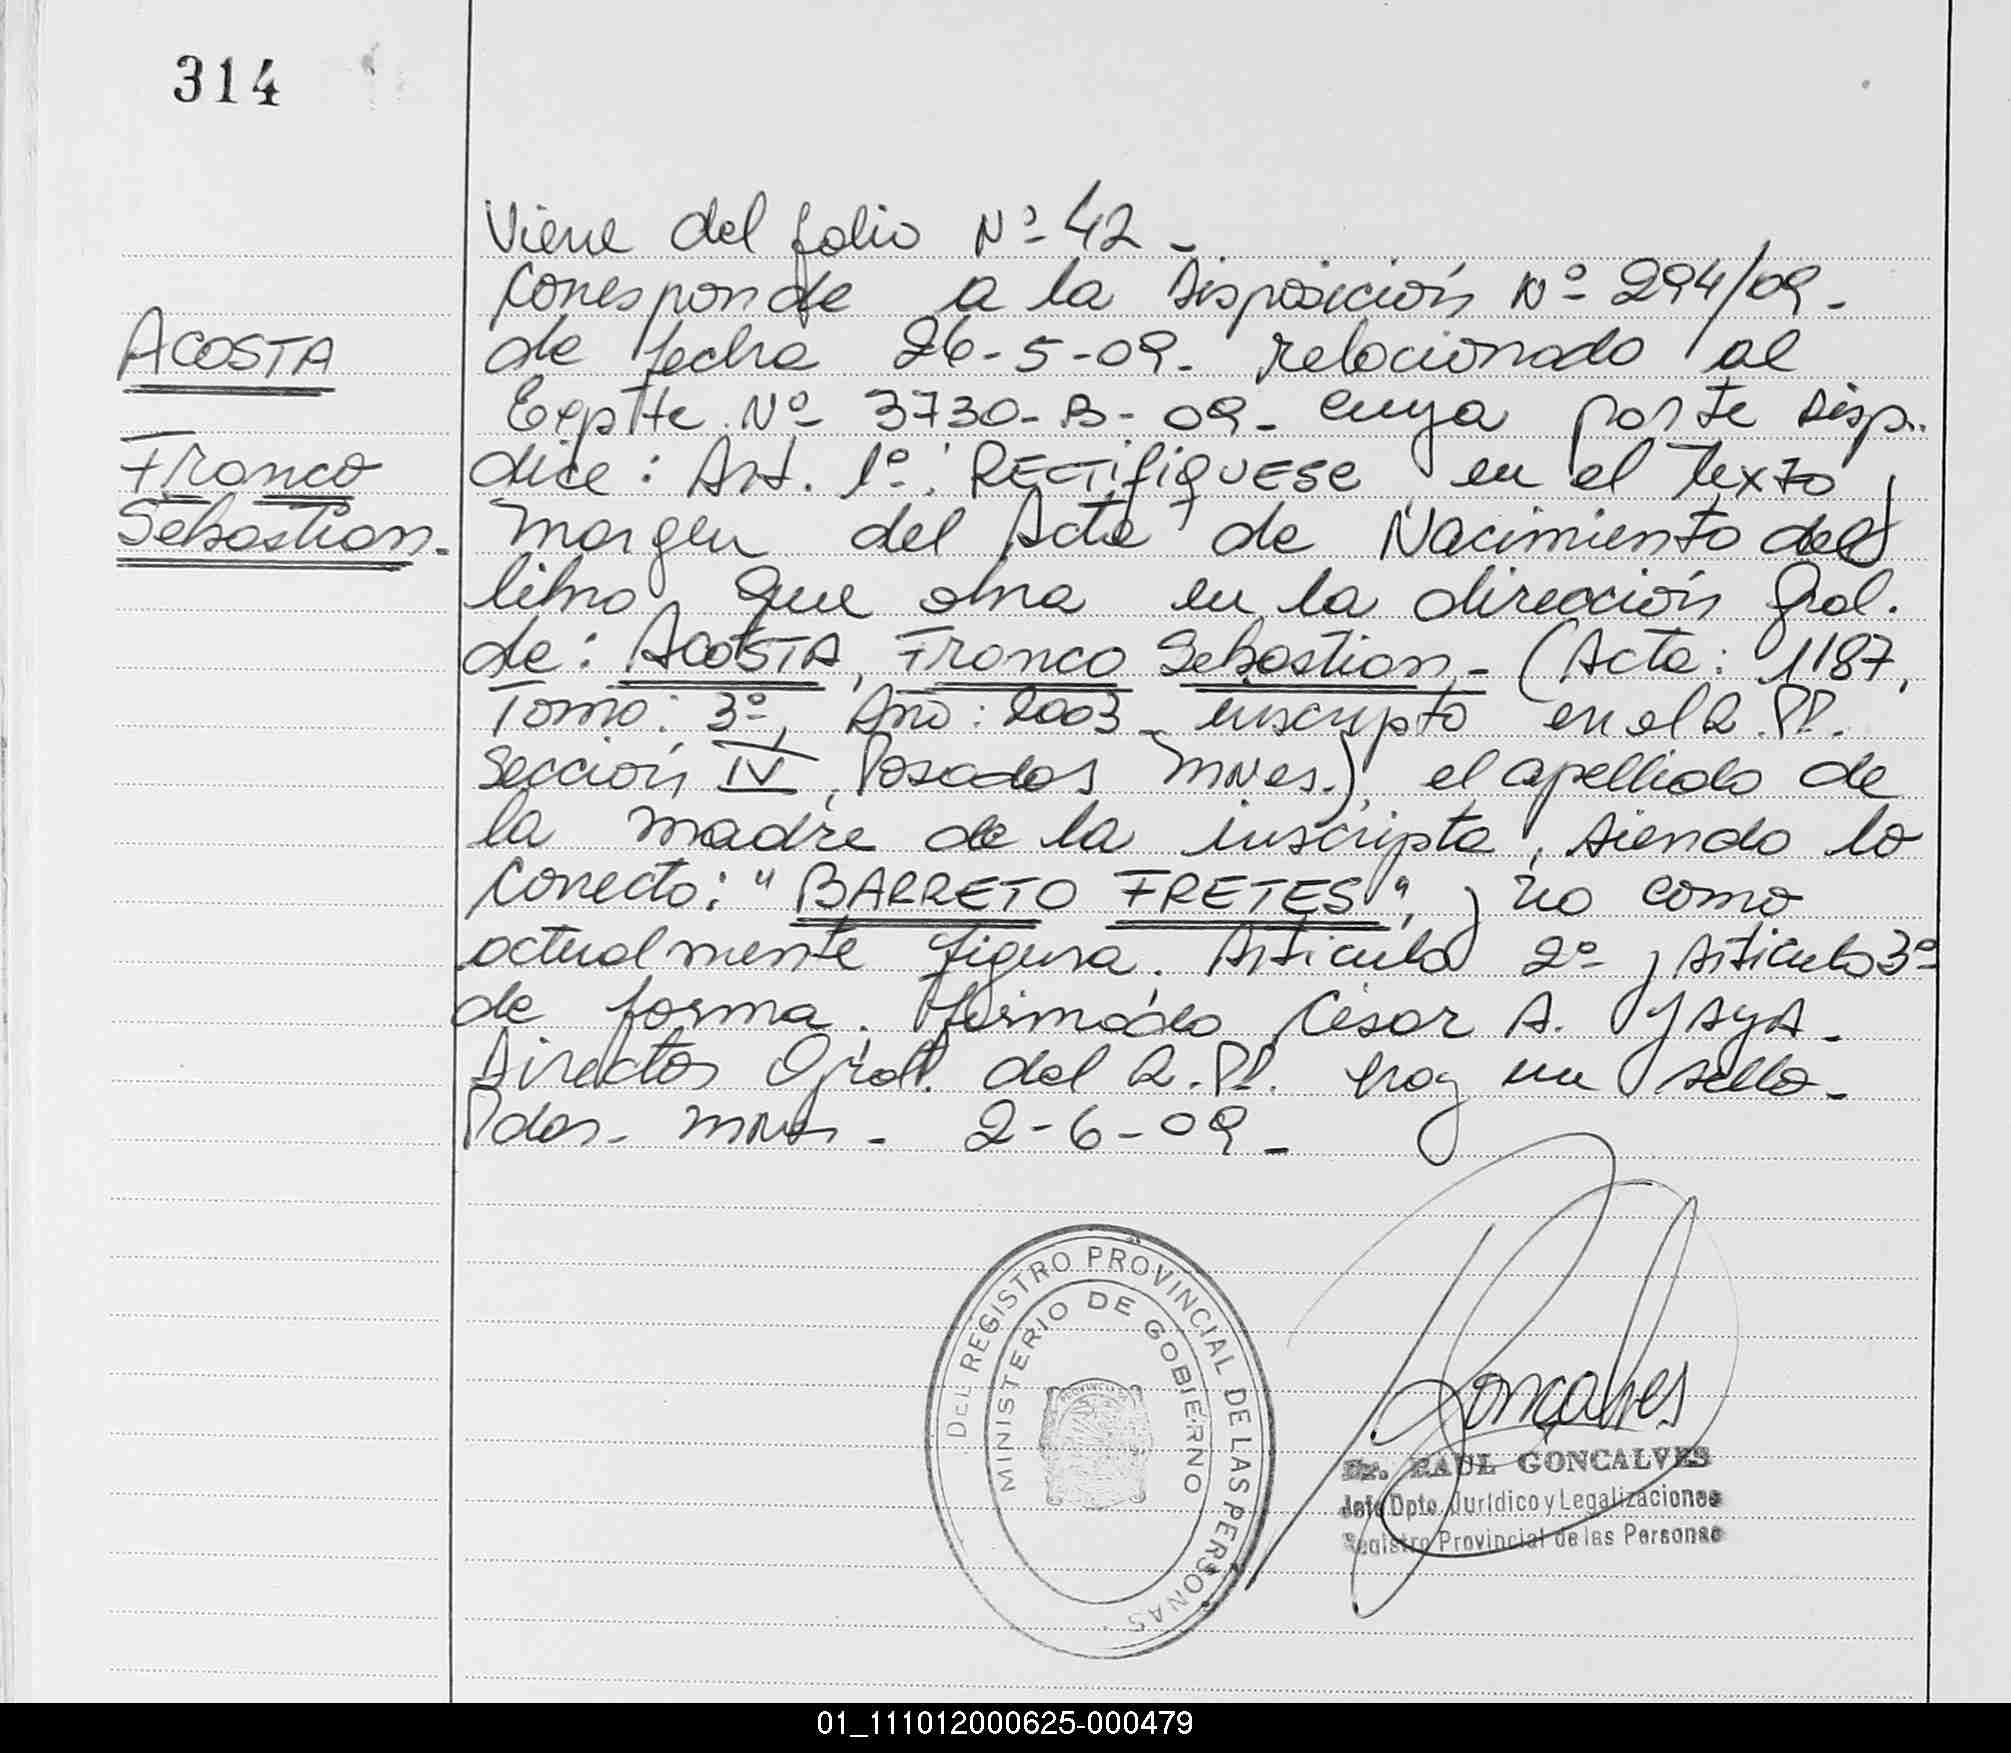 314
Viene del folio Nº 42 -
Corresponde a la Disposición Nº 294/09 -
ACOSTA
de fecha 26-5-09 - relacionado al
Expte Nº 3730-B-09 - cuya parte Disp.
Franco
dice: Art. 1º: RECTIFIQUESE en el texto y
Sebastian -
margen del Acta de Nacimiento del
libro que obra en la dirección Gral.
de: ACOSTA, Franco Sebastian - (Acta: 1187,
Tomo: 3º, Año: 2003 - inscripto en el R.PP.
Sección IV, Posadas Mnes.) el apellido de
la madre de la inscripta, siendo lo
Correcto: "BARRETO FRETES", y no como
actualmente figura. Articulo 2º y Articulo 3º
de forma. firmado César A. YAYA -
Director Gral. del R.PP. hay un sello -
Pdas - Mnes - 2-6-09 -
DEL REGISTRO PROVINCIAL DE LAS PERSONAS
MINISTERIO DE GOBIERNO
PROVINCIA
Goncalves
Dr. RAUL GONCALVES
Jefe Dpto. Jurídico y Legalizaciones
Registro Provincial de las Personas
01_111012000625-000479